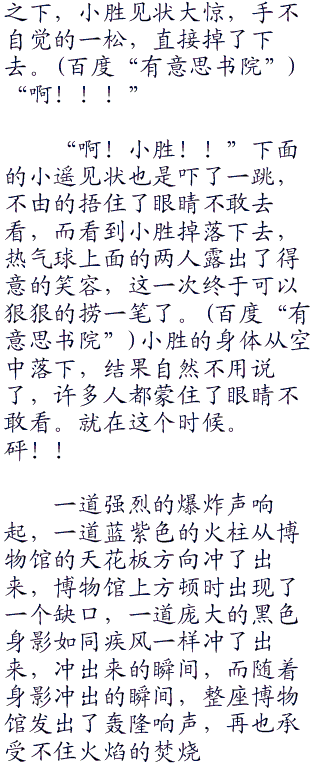 之下，小胜见状大惊，手不
自觉的一松，直接掉了下
去。(百度“有意思书院”)
“啊！！！”
“啊！小胜！！”下面
的小遥见状也是吓了一跳，
不由的捂住了眼睛不敢去
看，而看到小胜掉落下去，
热气球上面的两人露出了得
意的笑容，这一次终于可以
狠狠的捞一笔了。(百度“有
意思书院”)小胜的身体从空
中落下，结果自然不用说
了，许多人都蒙住了眼睛不
敢看。就在这个时候。
砰！！
一道强烈的爆炸声响
起，一道蓝紫色的火柱从博
物馆的天花板方向冲了出
来，博物馆上方顿时出现了
一个缺口，一道庞大的黑色
身影如同疾风一样冲了出
来，冲出来的瞬间，而随着
身影冲出的瞬间，整座博物
馆发出了轰隆响声，再也承
受不住火焰的焚烧